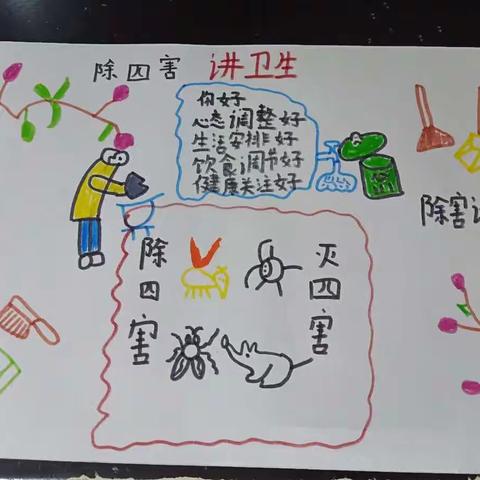 除四害 讲卫生
你好
心态调整好
生活安排好
饮食调节好
健康关注好
除害讲
除四害
灭四害